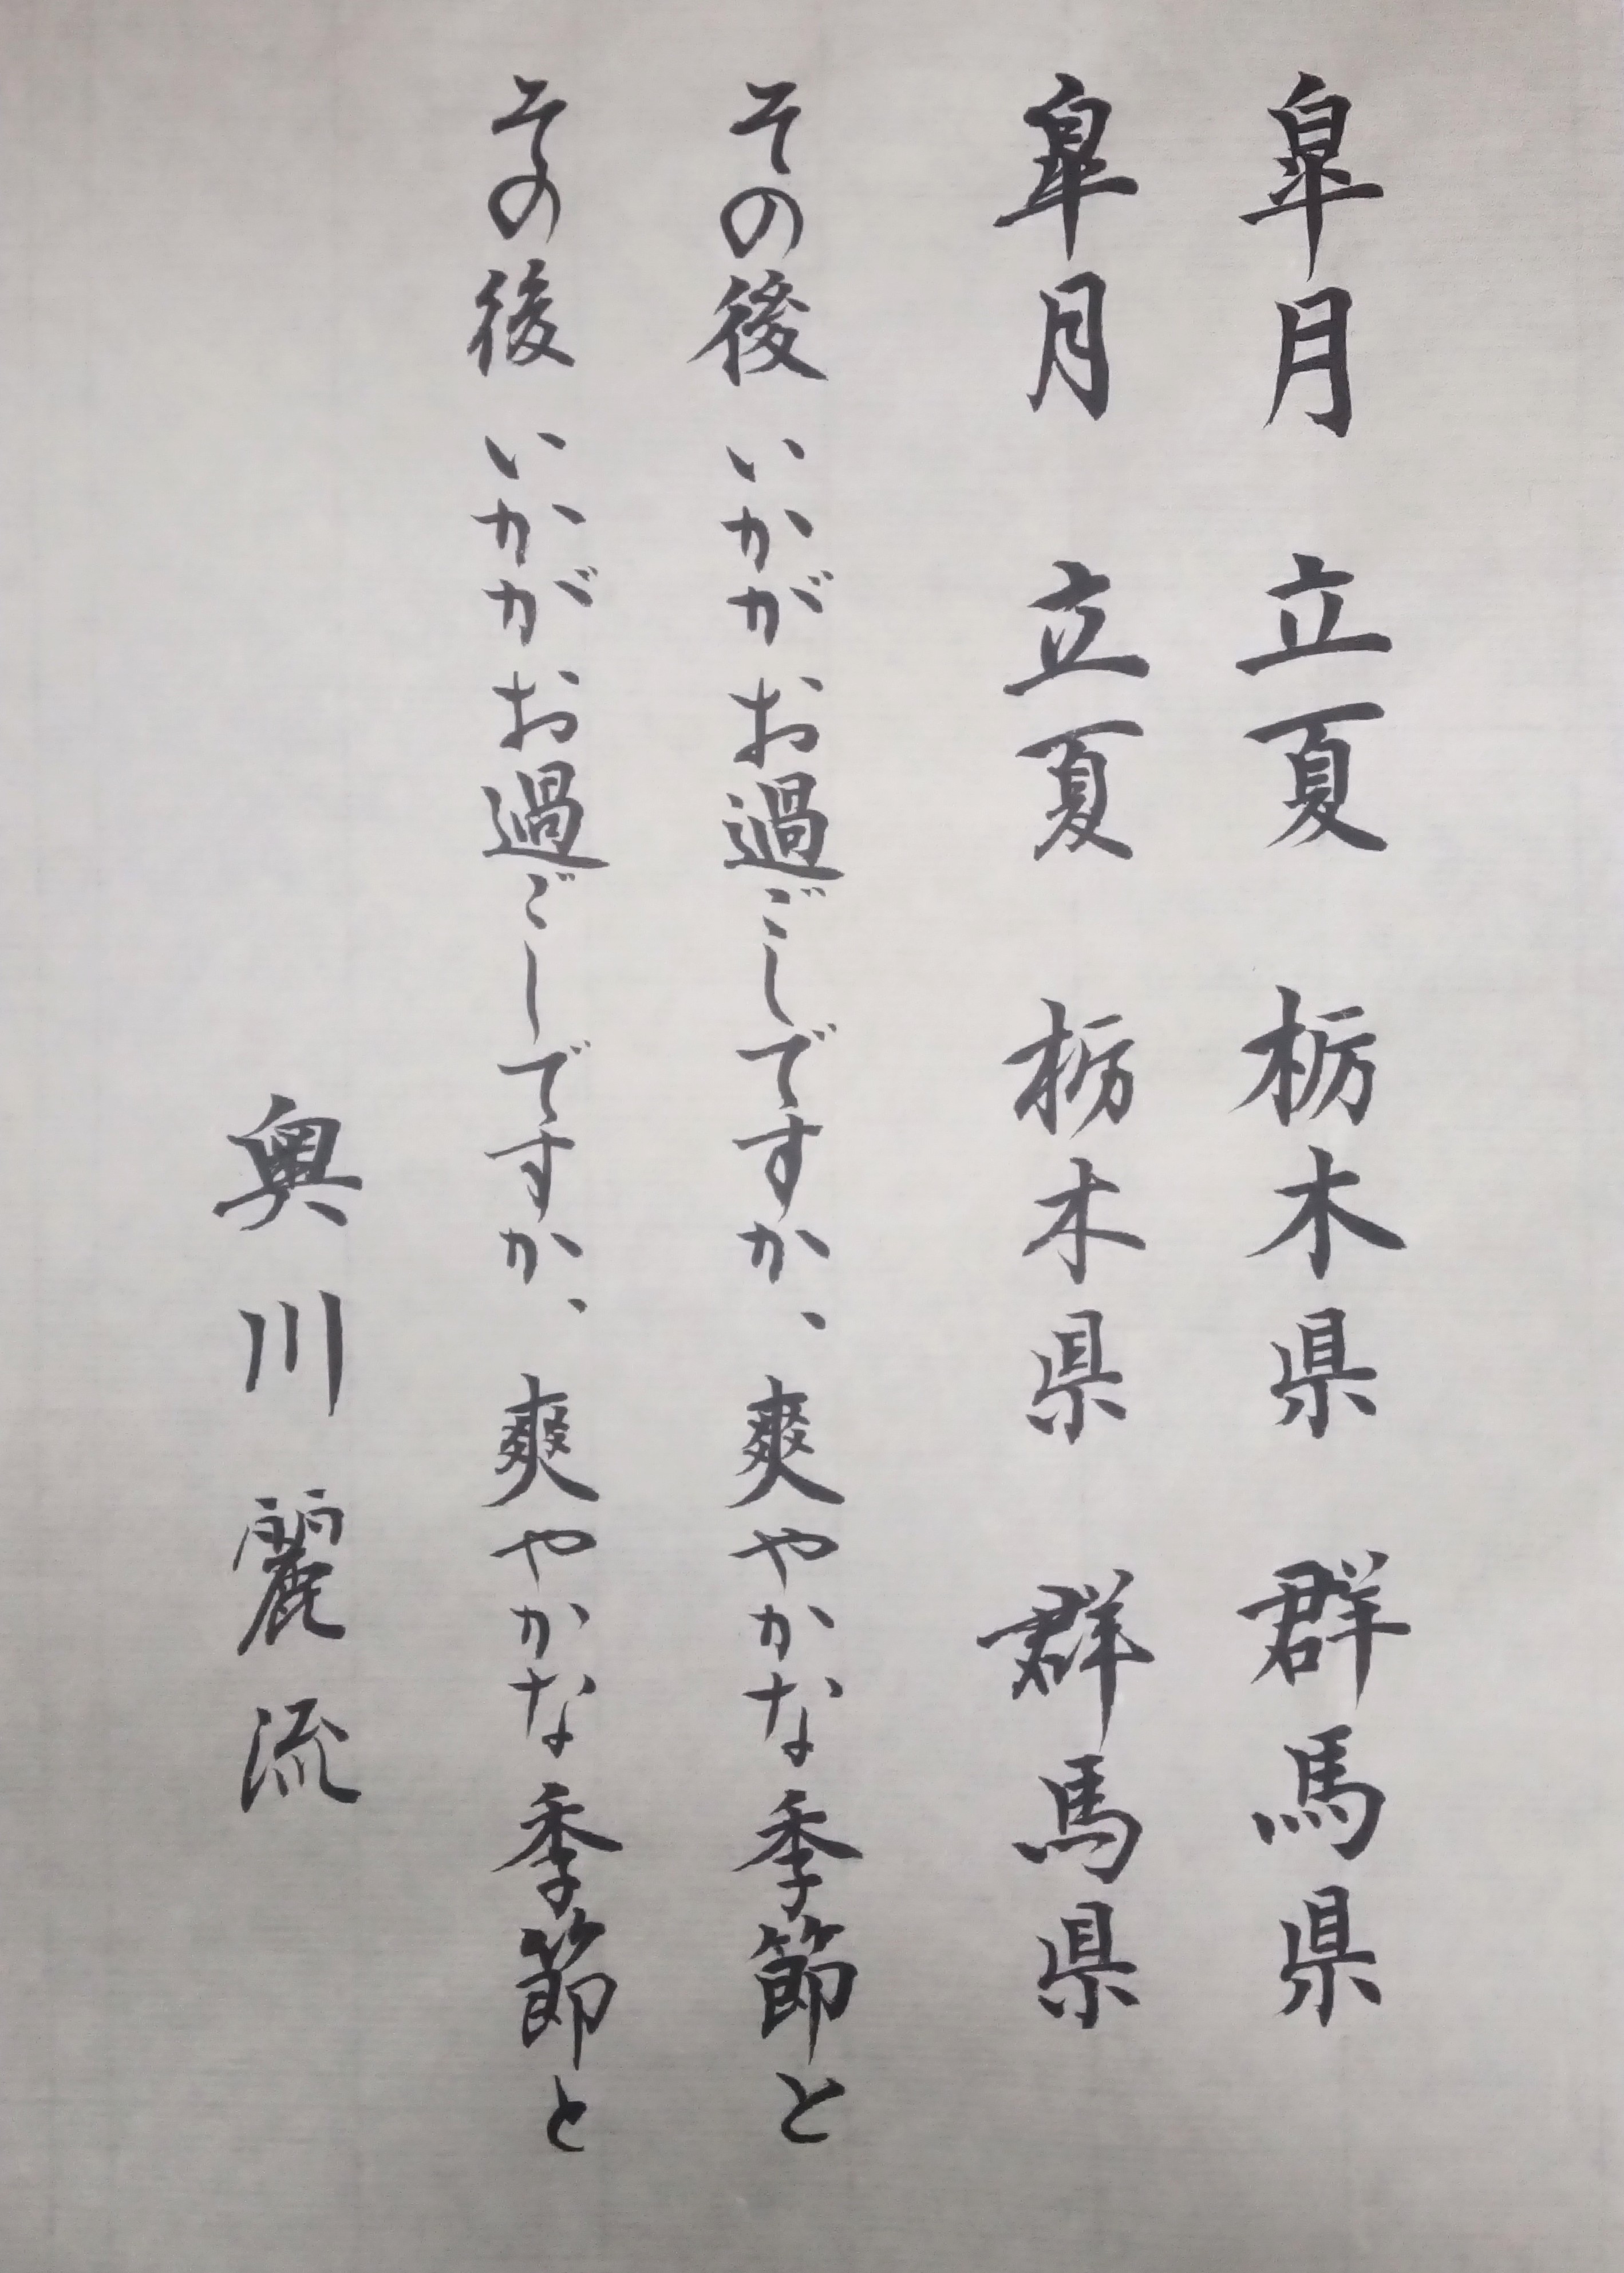 皐月 立夏 栃木県 群馬県
皐月 立夏 栃木県 群馬県
その後いかがお過ごしですか、爽やかな季節と
その後いかがお過ごしですか、爽やかな季節と
奥川麗流